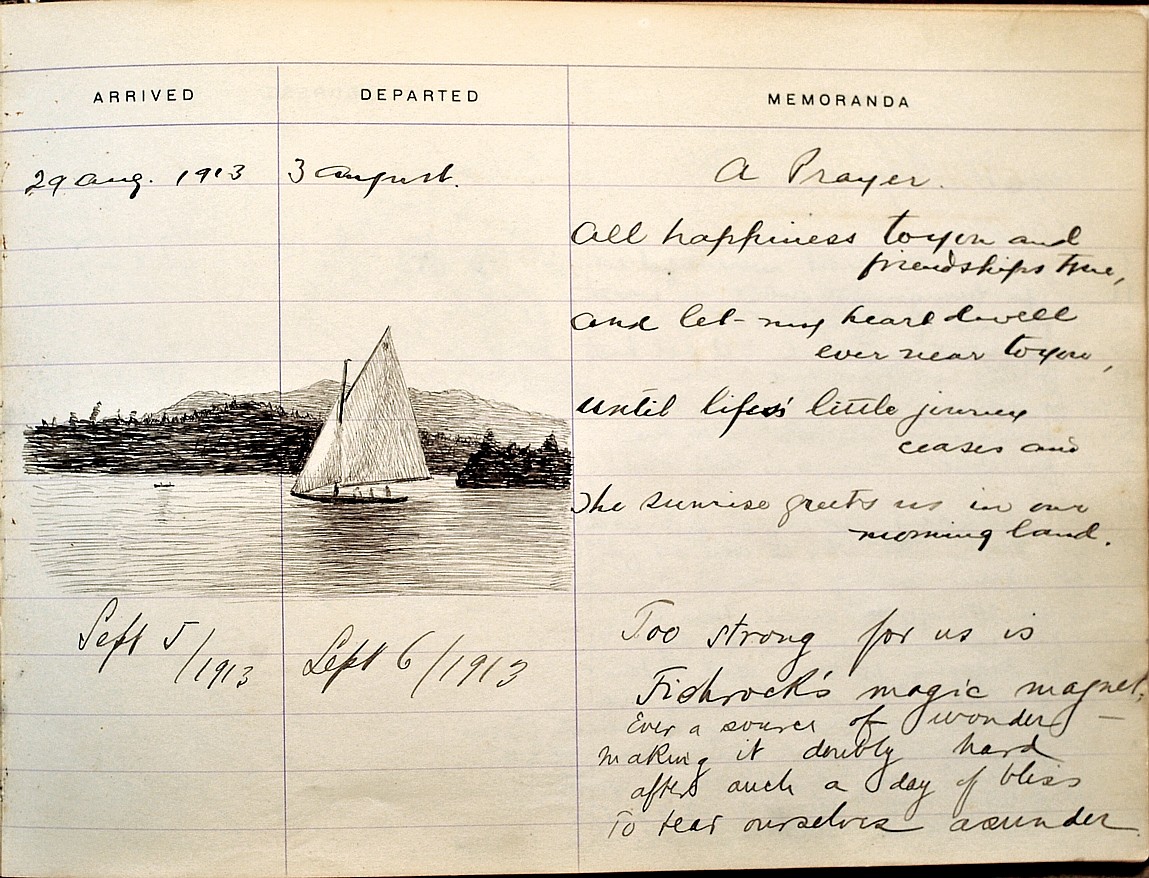 ARRIVED DEPARTED MEMORANDA
29 Aug. 1913 3 August.
A Prayer.
All happiness to you and
friendships true,
And let my heart dwell
ever near to you,
Until lifes' little journey
ceases and
The sunrise greets us in our
morning land.
Sept 5/1913 Sept 6/1913
Too strong for us is
Fishrock's magic magnet,
Ever a source of wonder –
Making it doubly hard
after such a day of bliss
To tear ourselves asunder